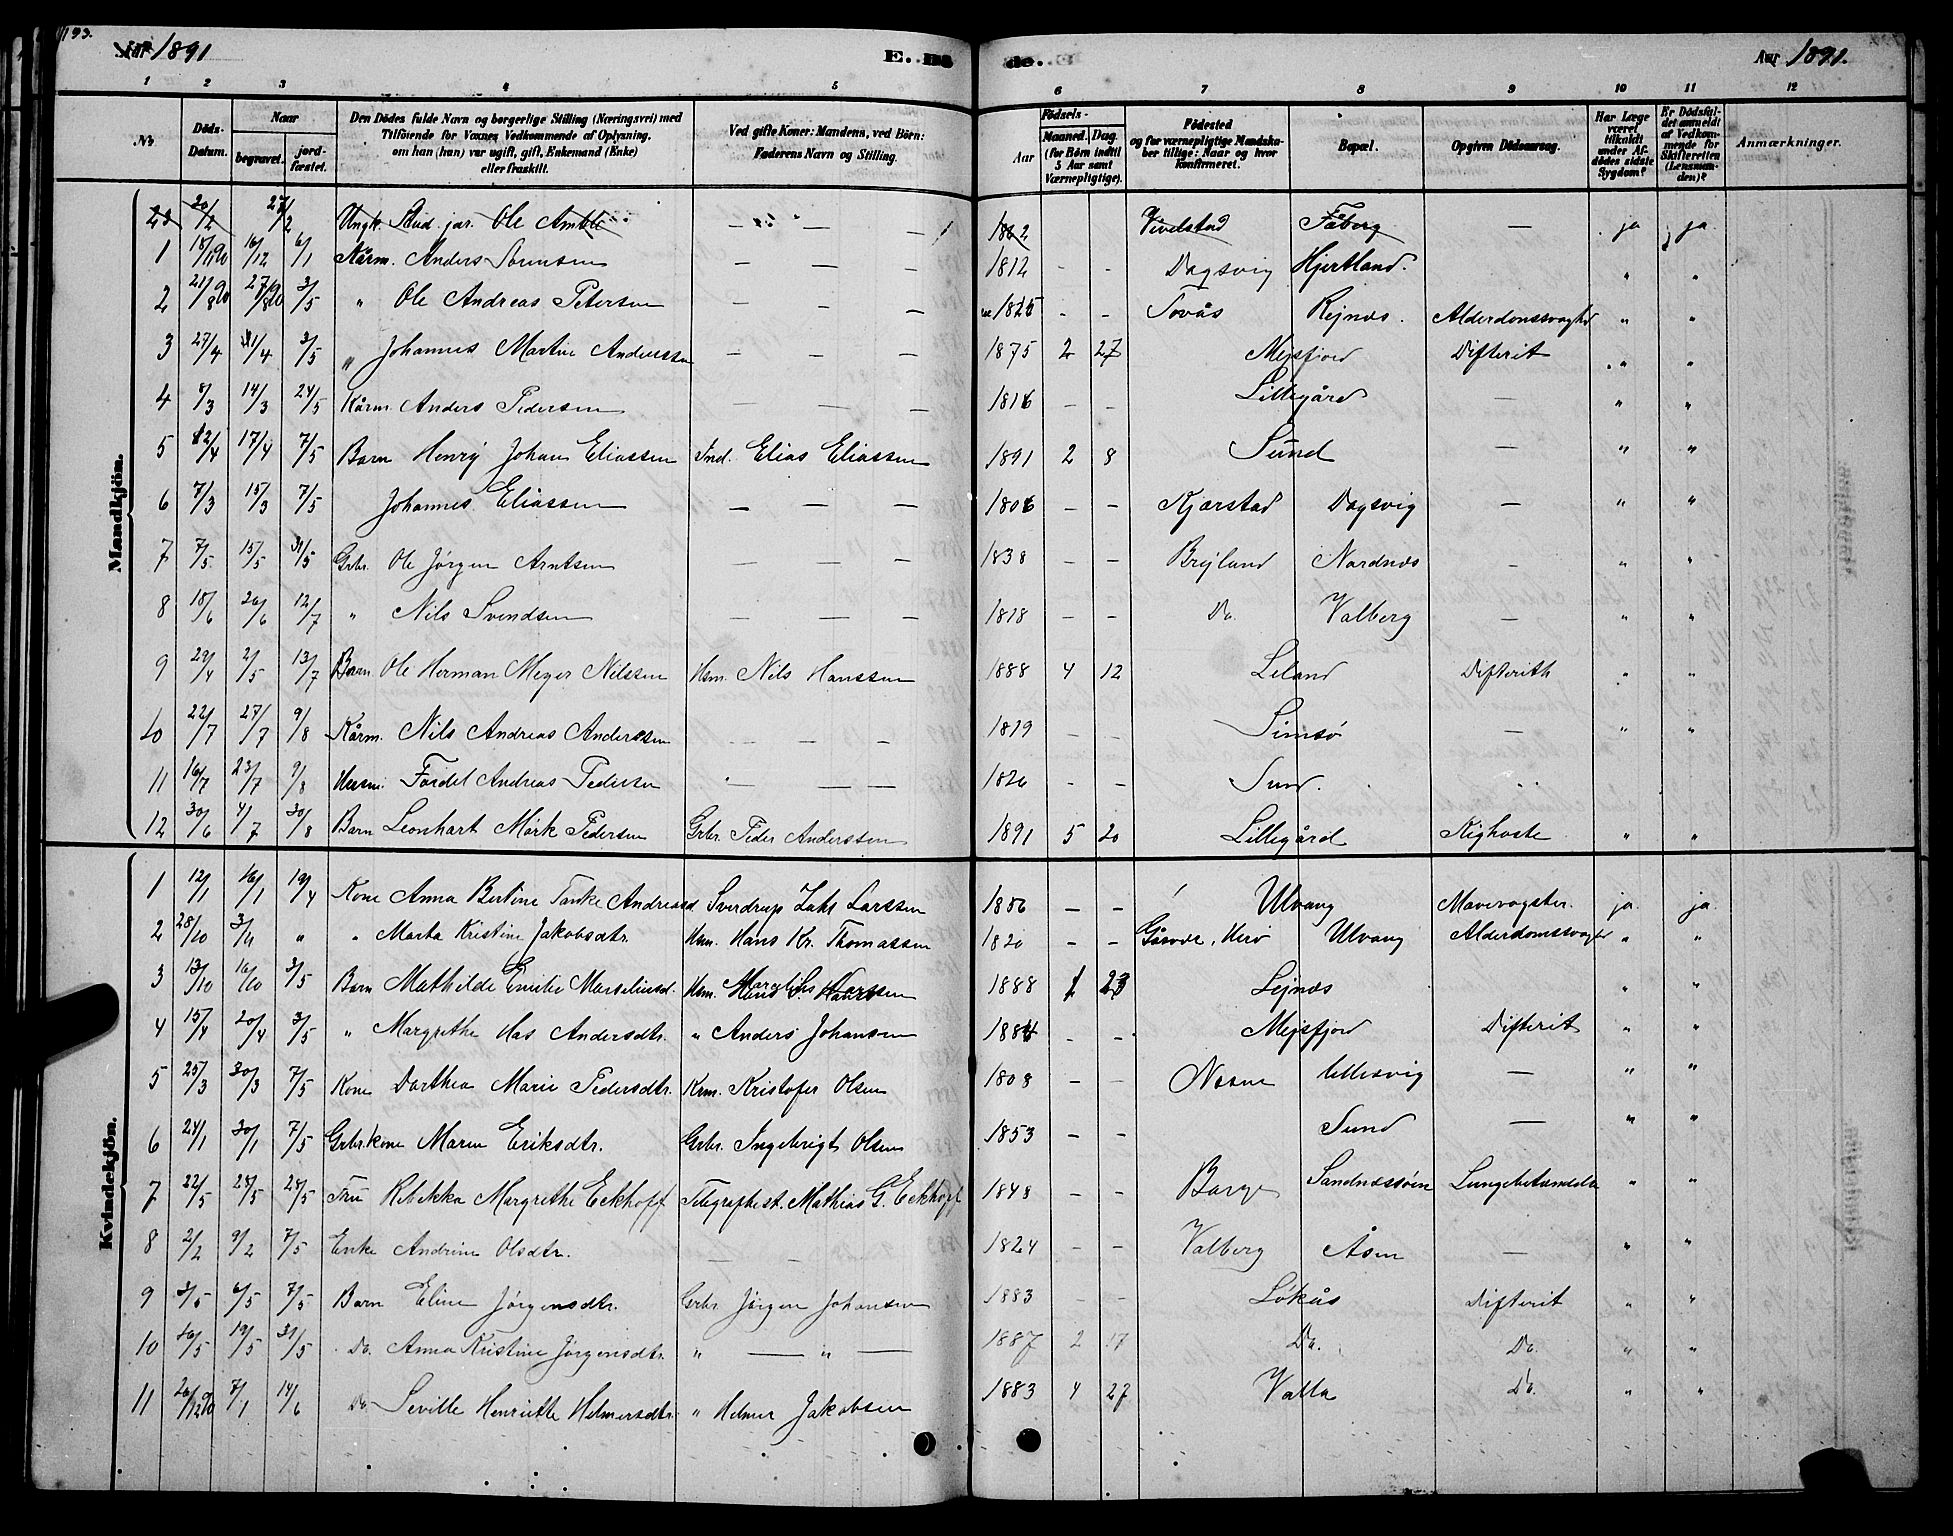 193.
Aar 1891
E. Døde.
Aar 1891.
1 2 3 4 5 6 7 8 9 10 11 12
No. Døds-Datum. Naar begravet. jordfæstet. Den Dødes fulde Navn og borgerlige Stilling (Næringsvei) med Tilføiende for Voxnes Vedkommende af Oplysning, om han (hun) var ugift, gift, Enkemand (Enke) eller fraskilt. Ved gifte Koner: Mandens, ved Børn: Faderens Navn og Stilling. Fødsels- Aar Maaned. Dag. (for Børn indtil 5 Aar samt Værnepligtige). Fødested og for værnepligtige Mandskaber tillige: Naar og hvor konfirmeret. Bopæl. Opgiven Dødsaarsag. Har Læge været tilkaldt under Afdødes sidste Sygdom? Er Dødsfaldet anmeldt af Vedkommende for Skifteretten (Lensmanden)? Anmærkninger.
Mandkjøn.
23 20/2 27/2 Ungk. Stud. jur. Ole Amble — — — 1862 Vivelstad Fåberg — ja ja
1 18/11 90 16/12 6/1 Kårm. Anders Sørensen — — — 1812 - - Dagsvig Hjertland. " "
2 21/8 90 27/8 90 3/5 " Ole Andreas Petersen — — — 1825 - - Tovås Rejnæs. Alderdomssvaghed " "
3 27/4 31/4 3/5 " Johannes Martin Anderssen — — — 1875 2 27 Mejsfjord Difterit " "
4 8/3 14/3 24/5 Kårm. Anders Pedersen — — — 1816 - - Lillegård — " "
5 12/4 17/4 7/5 Barn Henry Johan Eliassen Ind. Elias Eliassen 1891 2 8 Sund — " "
6 7/3 15/3 7/5 Johannes Eliassen — — — 1806 - - Kjærstad Dagsvig — " "
7 7/5 15/5 31/5 Grbr. Ole Jørgen Arntsen — — — 1838 - - Brejland Nordnæs — " "
8 18/6 26/6 12/7 " Nils Svendsen — — — 1818 - - Do. Valberg — " "
9 29/4 2/5 13/7 Barn Ole Herman Meyer Nilssen Hsm. Nils Hanssen 1888 4 12 Leland Difterith " "
10 22/7 27/7 9/8 Kårm. Nils Andreas Anderssen — — — 1819 - - Simsø — " "
11 16/7 23/7 9/8 Husm. Fordel Andreas Pedersen — — — 1826 - - Sund. " "
12 30/6 4/7 30/8 Barn Leonhart Mørk Pedersen Grbr. Peder Anderssen 1891 5 20 Lillegård Kighoste " "
Kvindekjøn.
1 12/1 16/1 19/4 Kone Anna Bertine Tanke Andreasd. Sverdrup Zakr. Larssen 1856 — — Ulvang Mavevogster. ja ja
2 28/10 3/11 " " Marta Kristine Jakobsdtr. Hsm. Hans Kr. Thomassen 1820 - - Herø Ulvang Alderdomssvaghed " "
3 13/10 16/10 3/5 Barn Mathilde Emilie Marseliusd. Hsm. Marselius Hanssen 1888 1 23 Lejnæs " "
4 15/4 20/4 3/5 " Margrethe Has Andersdtr. " Anders Johansen 1884 - - Mejsfjord Difterit " "
5 25/3 30/3 7/5 Kone Dorthea Marie Pedersdtr. Krm. Kristofer Olsen 1808 - - Nesne Ullesvig — " "
6 24/1 30/1 7/5 Grbr.kone Maren Eriksdtr. Grbr. Ingebrigt Olsen 1853 - - Sund — " "
7 22/5 28/5 28/5 Fru Rebekka Margrethe Eckhoff Telegrafbest. Mathias G. Eckhoff 1848 - - Borge Sandnæssøen Lungebetændelse " "
8 2/2 9/2 7/5 Enke Andrine Olsdtr. — — 1824 - - Valberg Åsen — " "
9 3/5 6/5 7/5 Barn Eline Jørgensdtr. Grbr Jørgen Johansen 1883 - - Løkås Difterit " "
10 16/5 19/5 31/5 Do. Anna Kristine Jørgensdtr. " — " — 1887 2 17 Do. Do. " "
11 26/12 90 7/1 14/6 Do. Seville Henriette Helmersdtr. " Helmer Jakobsen 1883 4 27 Valla Do. " "